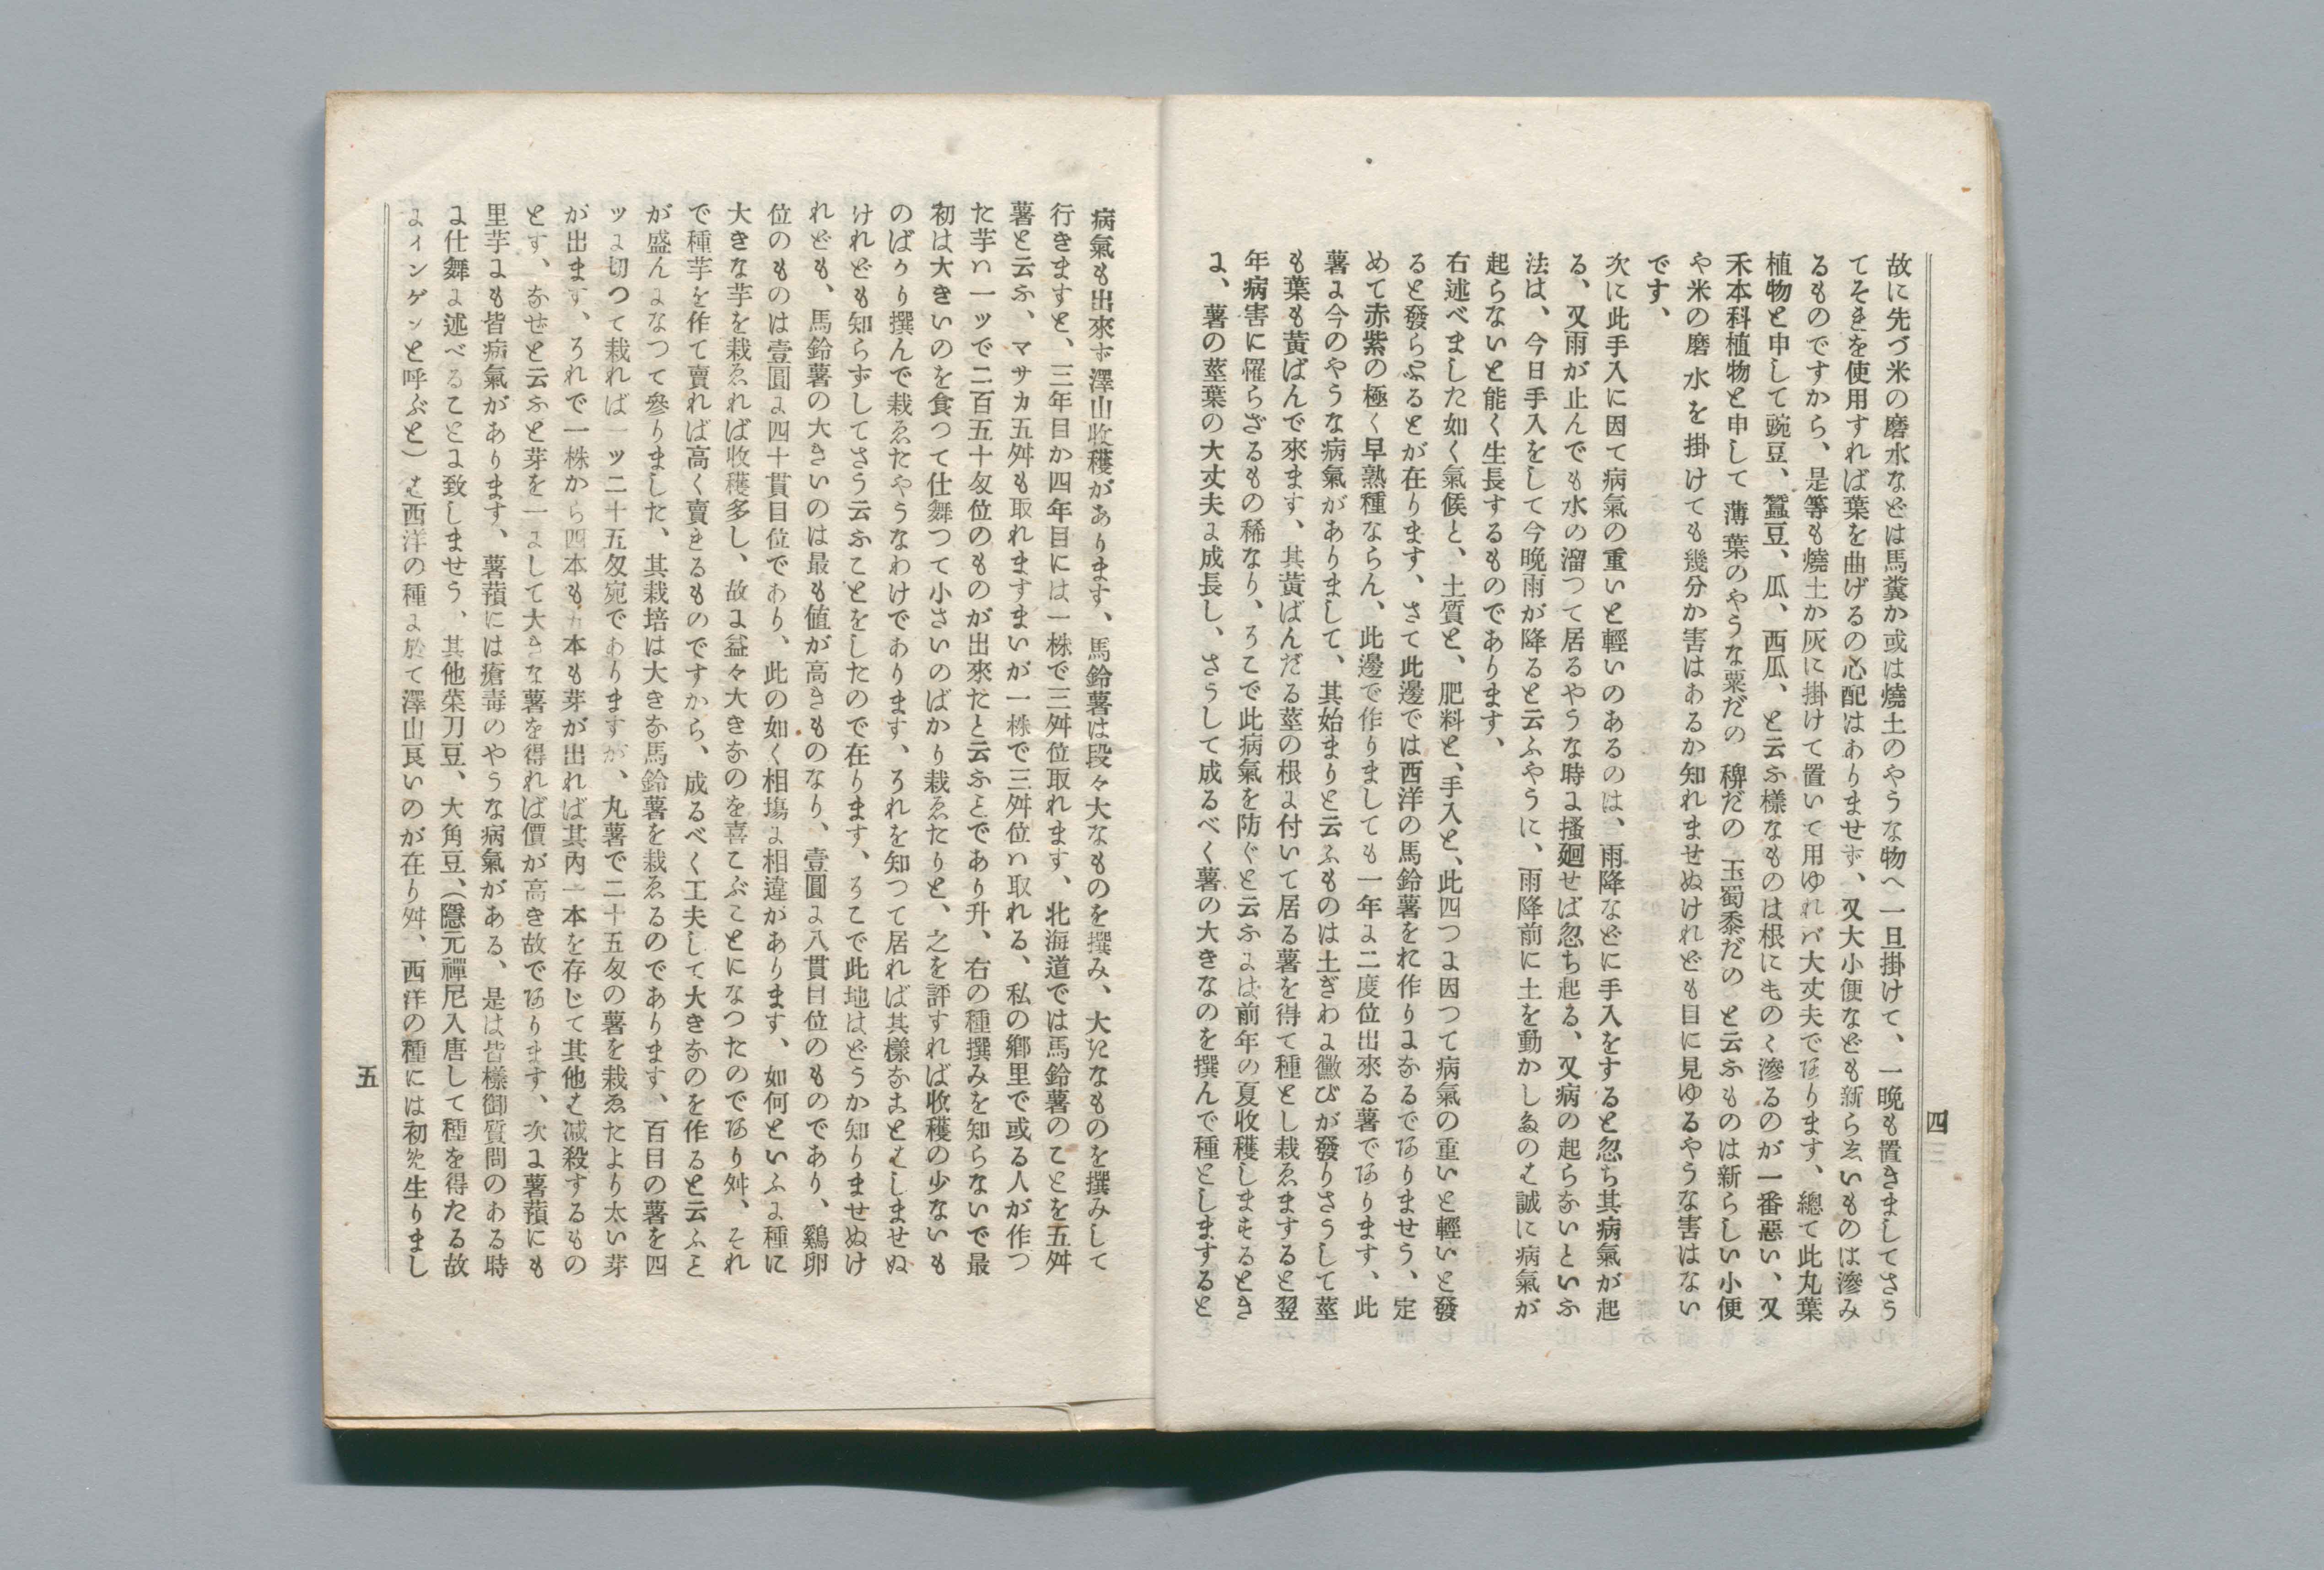 四
故に先づ米の磨水などは馬糞か或は燒土のやうな物へ一旦掛けて、一晩も置きましてさう
てそきを使用すれば葉を曲げるの心配はありませず、又大小便なども新らゑいものは滲み
るものですから、是等も燒土か灰に掛けて置いて用ゆれバ大丈夫であります、總て此丸葉
植物と申して豌豆、蠶豆、瓜、西瓜、と云ふ樣なものは根にものく滲るのが一番惡い、又
禾本科植物と申して薄葉のやうな粟だの稗だの玉蜀黍だのと云ふものは新らしい小便
や米の磨水を掛けても幾分か害はあるか知れませぬけれども目に見ゆるやうな害はない
です、
次に此手入に因て病氣の重いと輕いのあるのは、雨降などに手入をすると忽ち其病氣が起
る、又雨が止んでも水の溜つて居るやうな時に搔廻せば忽ち起る、又病の起らないといふ
法は、今日手入をして今晩雨が降ると云ふやうに、雨降前に土を動かしゑのむ誠に病氣が
起らないと能く生長するものであります、
右述べました如く氣候と、土質と、肥料と、手入と、此四つに因つて病氣の重いと輕いと發
ると發らぶるとが在ります、さて此邊では西洋の馬鈴薯をれ作りになるでありませう、定
めて赤紫の極く早熟種ならん、此邊で作りましても一年に二度位出來る薯であります、此
薯に今のやうな病氣がありまして、其始まりと云ふものは土ぎわに黴びが發りさうして莖
も葉も黃ばんで來ます、其黃ばんだる莖の根に付いて居る薯を得て種とし栽ゑますると翌
年病害に罹らざるもの稀なり、そこで此病氣を防ぐと云ふには前年の夏收穫しまもるとき
に、薯の莖葉の大丈夫に成長し、さうして成るべく薯の大きなのを撰んで種としますると
病氣も出來ず澤山收穫があります、馬鈴薯は段々大なものを撰み、大たなものを撰みして
行きますと、三年目か四年目には一株で三舛位取れます、北海道では馬鈴薯のことを五舛
薯と云ふ、マサカ五舛も取れますまいが一株で三舛位ハ取れる、私の鄕里で或る人が作つ
た芋ハ一ッで二百五十匁位のものが出來たと云ふことであり升、右の種撰みを知らないで最
初は大きいのを食つて仕舞つて小さいのばかり栽ゑたりと、之を評すれば收穫の少ないも
のばかり撰んで栽ゑたやうなわけであります、それを知つて居れば其樣なまとむしませぬ
けれども知らずしてさう云ふことをしたので在ります、そこで此地はどうか知りませぬけ
れども、馬鈴薯の大きいのは最も値が高きものなり、壹圓に八貫目位のものであり、鷄卵
位のものは壹圓に四十貫目位であり、此の如く相塲に相違があります、如何といふに種に
大きな芋を栽ゑれば收穫多し、故に益々大きなのを喜こぶことになつたのであり舛、それ
で種芋を作て賣れば高く賣きるものですから、成るべく工夫して大きなのを作ると云ふこと
が盛んになつて參りました、其栽培は大きな馬鈴薯を栽ゑるのであります、百目の薯を四
ッに切つて栽れば一ッ二十五匁宛でありますが、丸薯で二十五匁の薯を栽ゑたより太い芽
が出ます、それで一株から四本も五本も芽が出れば其內一本を存じて其他む減殺するもの
とす、なぜと云ふと芽を一にして大きな薯を得れば價が高き故であります、次に薯蕷にも
里芋にも皆病氣があります、薯蕷には瘡毒のやうな病氣がある、是は皆樣御質問のある時
に仕舞に述べることに致しませう、其他菜刀豆、大角豆、（隱元禪尼入唐して種を得たる故
にインゲンと呼ぶと）む西洋の種に於て澤山良いのが在り舛、西洋の種には初先生りまし
五